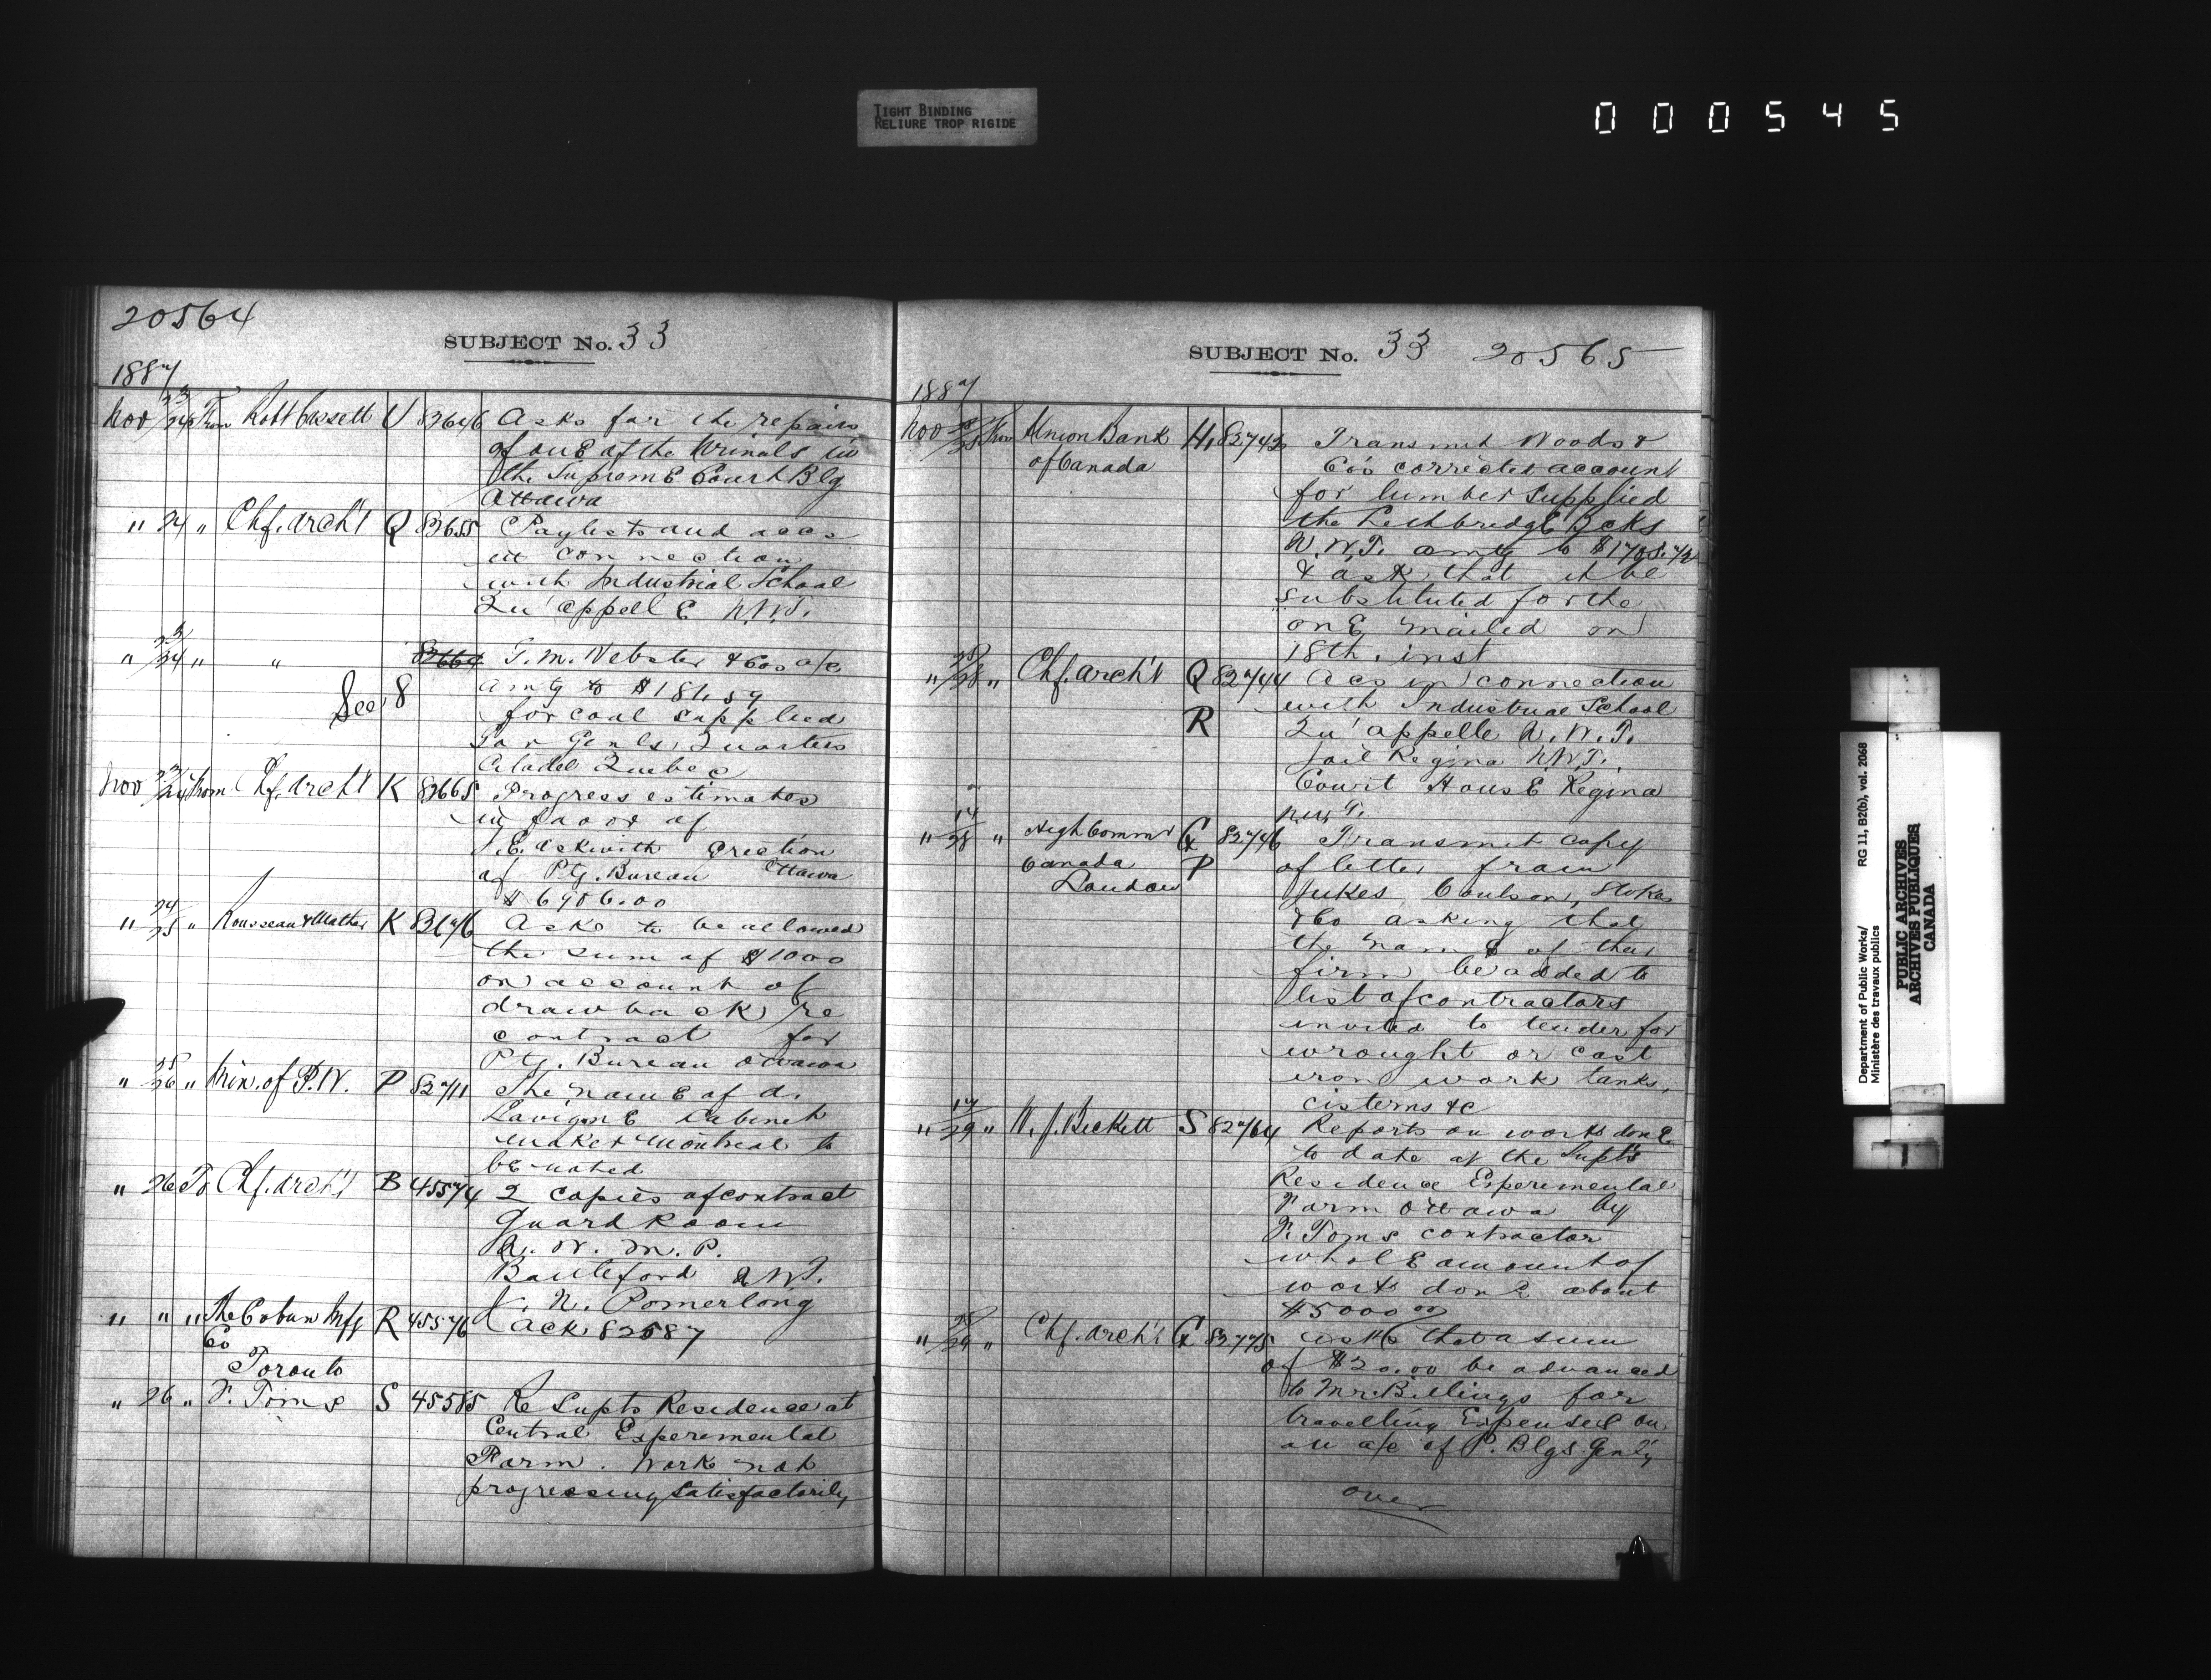 TIGHT BINDING
RELIURE TROP RIGIDE
000545
20564
SUBJECT No. 33
1887
Nov 23/24 From Robt Cassell U 82646 Asks for the repairs
of one of the Urinals in
the Supreme Court Blg
Ottawa
" 24 " Chf. Arch't Q 82655 Paylists and accs
in connection
with Industrial School
Qu'appelle N.W.T.
" 23/24 " " 82664 G. M. Webster & Cos a/c
amtg to $181.59
See 8
for coal supplied
Gov Genls Quarters
Citadel Quebec
Nov 23/24 From Chf. Arch't K 82665 Progress estimates
in favor of
J. E. Askwith Erection
of Ptg. Bureau Ottawa
$6986.00
" 24/25 " Rousseau & Mather K 82676 Asks to be allowed
the sum of $1000
on account of
drawback re
contract for
Ptg. Bureau Ottawa
" 25/26 " Min. of P.W. P 82711 The name of A.
Lavigne Cabinet
Maker Montreal to
be noted
" 26 To Chf. Arch't B 45574 2 copies of contract
Guard Room
N. W. M. P.
Battleford N.W.T.
J. N. Pomerlong
" " " The Cobun Mfg R 45576 Ack 82587
Co
Toronto
" 26 " F. Toms S 45585 Re Supts Residence at
Central Experimental
Farm. Work not
progressing Satisfactorily
SUBJECT No. 33 20565
1887
Nov 25/28 From Union Bank H, 82742 Transmit Woods &
of Canada
Co's corrected account
for lumber supplied
the Lethbridge Bcks
N.W.T. amtg to $1705.72
& ask that it be
substituted for the
one mailed on
18th. inst
" 28 " Chf. Arch't Q 82744 Accs in connection
with Industrial School
R Qu'appelle N.W.T.
Jail Regina N.W.T.
Court House Regina
N.W.T.
" 14/28 " High Commr G 82746 Transmit copy
Canada P of letter from
London
Jukes, Coulson, Stokes
& Co asking that
the name of their
firm be added to
list of contractors
invited to tender for
wrought or cast
iron work tanks,
cisterns &c
" 17/29 " W. J. Beckett S 82764 Reports on works done
to date at the Supt's
Residence Experimental
Farm Ottawa by
F. Toms contractor
whole amount of
works done about
$5000 00
" 28/29 " Chf. Arch't G 82775 asks that a sum
of $20.00 be advanced
to Mr. Billings for
travelling Expenses on
on a/c of P. Blgs. Gen'ly
over
Department of Public Works/
Ministère des travaux publics
RG 11, B2(b), vol. 2068
PUBLIC ARCHIVES
ARCHIVES PUBLIQUES
CANADA